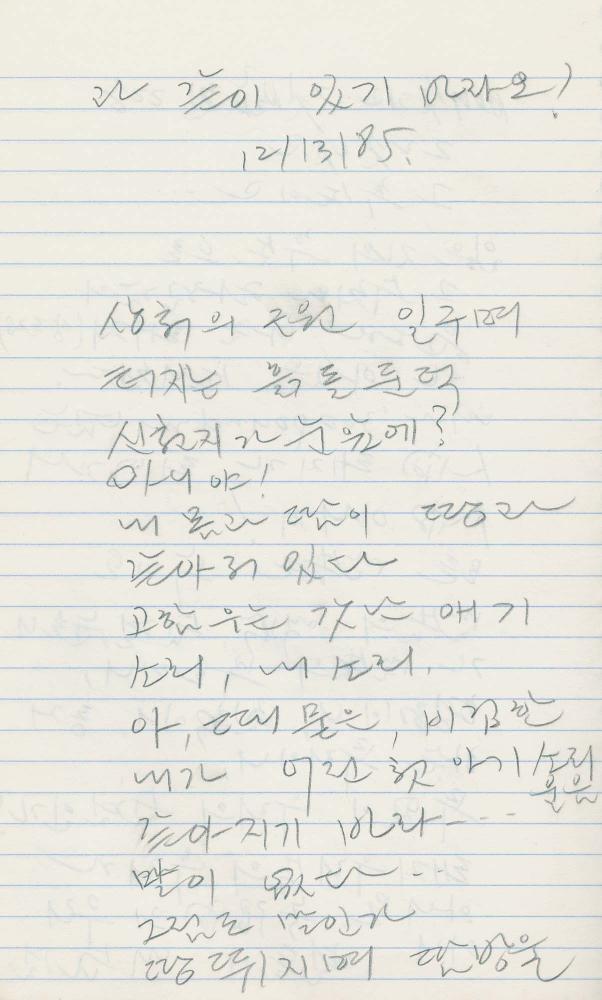 과 같이 있기 바라오!
12/13/85.
상처의 근원 일구며
터지는 흙을
신천지가 눈 앞에?
아니야!
내 몸과 땀이 땅과
같아져 있다
고함 우는 갓난 애기
소리, 내 소리.
아, 때 묻은, 비겁한
내가 어찌 첫 아기 소리
같아지기 바라---
말이 없다..
그점도 말인가
땅 뛰지며 땀방울